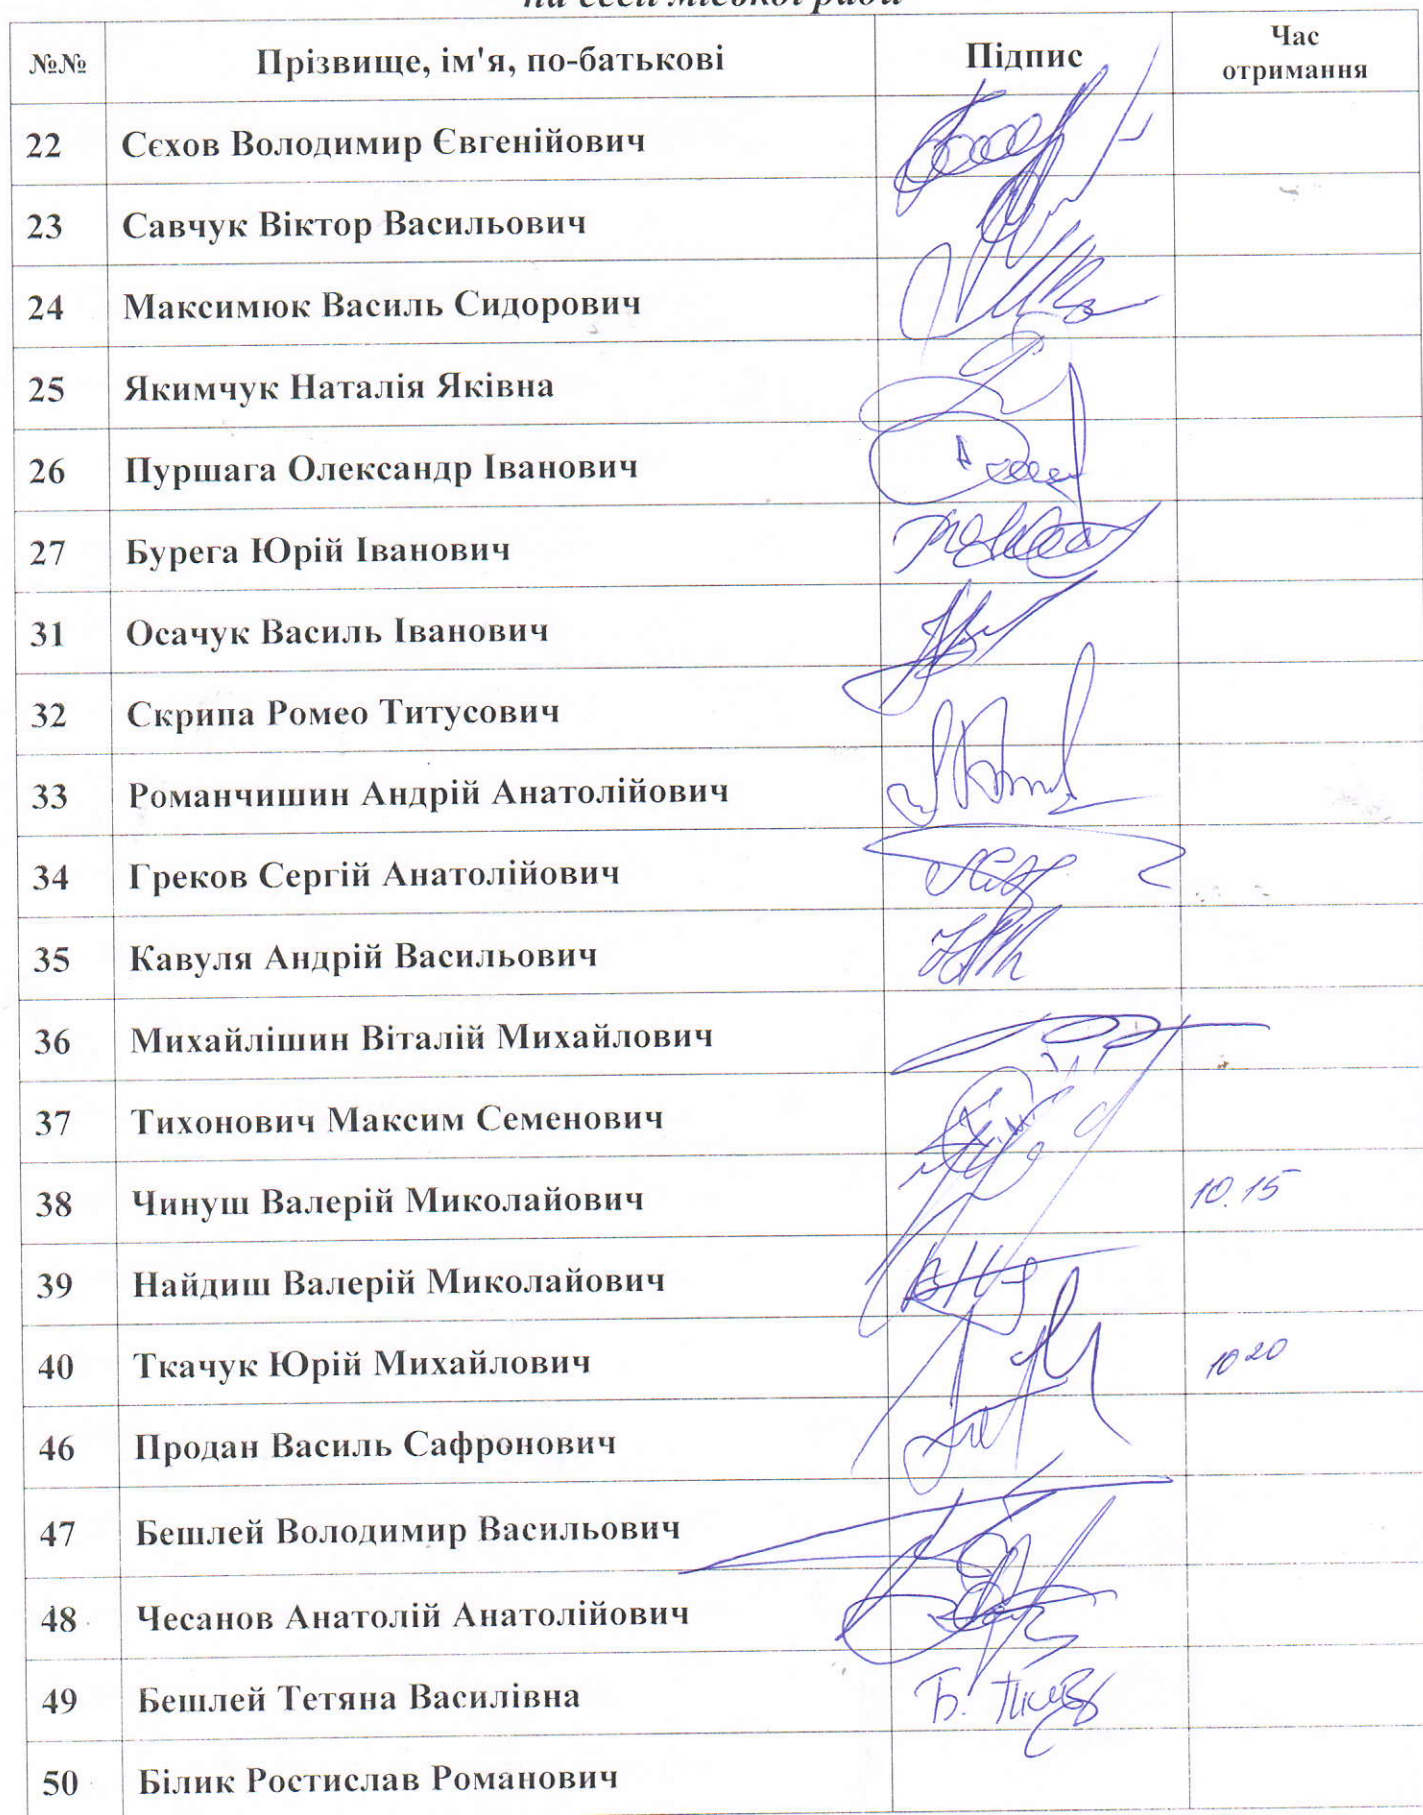 на сесії міської ради
№№ Прізвище, ім'я, по-батькові Підпис Час отримання
22 Сєхов Володимир Євгенійович
23 Савчук Віктор Васильович
24 Максимюк Василь Сидорович
25 Якимчук Наталія Яківна
26 Пуршага Олександр Іванович
27 Бурега Юрій Іванович
31 Осачук Василь Іванович
32 Скрипа Ромео Титусович
33 Романчишин Андрій Анатолійович
34 Греков Сергій Анатолійович
35 Кавуля Андрій Васильович
36 Михайлішин Віталій Михайлович
37 Тихонович Максим Семенович
38 Чинуш Валерій Миколайович 10.15
39 Найдиш Валерій Миколайович
40 Ткачук Юрій Михайлович 10 20
46 Продан Василь Сафронович
47 Бешлей Володимир Васильович
48 Чесанов Анатолій Анатолійович
49 Бешлей Тетяна Василівна
50 Білик Ростислав Романович